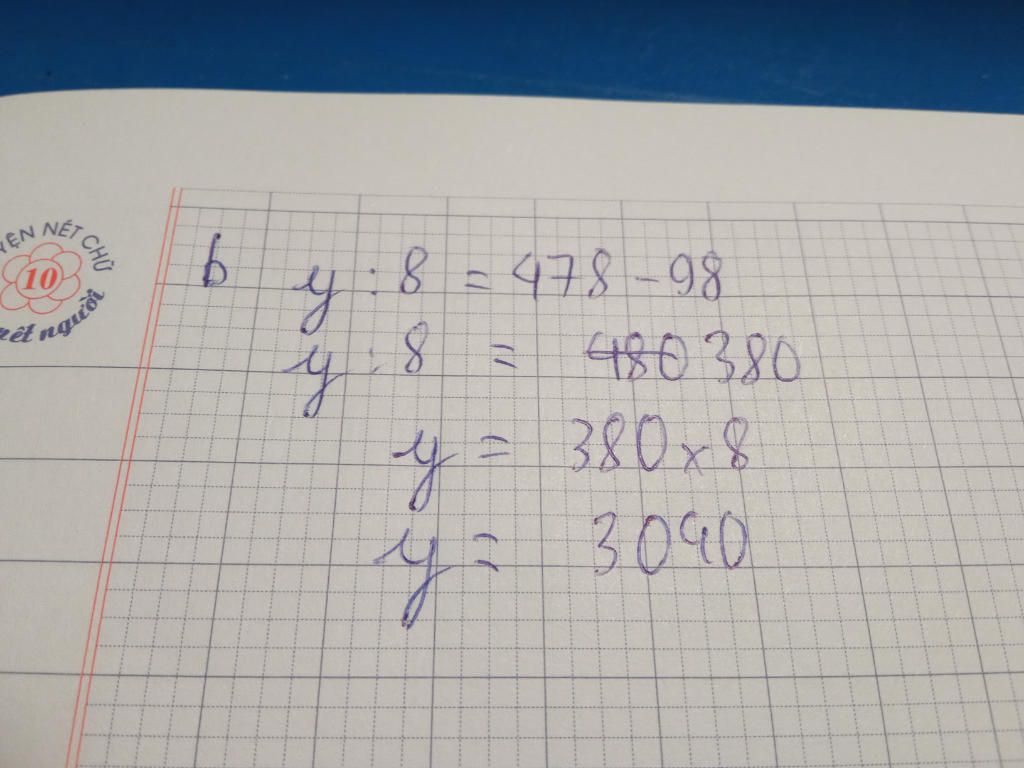 YỆN NẾT CHỮ
10
rèt người
b y : 8 = 478 - 98
y : 8 = 480 380
y = 380 x 8
y = 3040